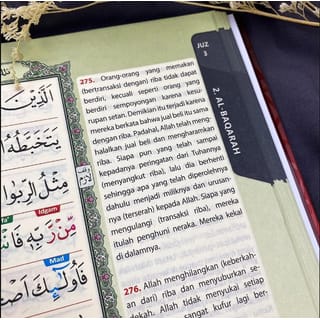 JUZ
3
2. AL-BAQARAH
275. Orang-orang yang memakan
(bertransaksi dengan) riba tidak dapat
berdiri, kecuali seperti orang yang
berdiri sempoyongan karena kesu-
rupan setan. Demikian itu terjadi karena
mereka berkata bahwa jual beli itu sama
dengan riba. Padahal, Allah telah meng-
halalkan jual beli dan mengharamkan
riba. Siapa pun yang telah sampai
kepadanya peringatan dari Tuhannya
(menyangkut riba), lalu dia berhenti
sehingga apa yang telah diperolehnya
dahulu menjadi miliknya dan urusan-
nya (terserah) kepada Allah. Siapa yang
mengulangi (transaksi riba), mereka
itulah penghuni neraka. Mereka kekal
di dalamnya.
276. Allah menghilangkan (keberkah-
an dari) riba dan menyuburkan se-
dekah. Allah tidak menyukai setiap
sangat kufur lagi ber-
الَّذِيْنَ
يَتَخَبَّطُهُ
مِثْلُ الرِّبٰوا
Idgam
مِّنْ رَّبِّهٖ
Mad
فَاُولٰۤىِٕكَ